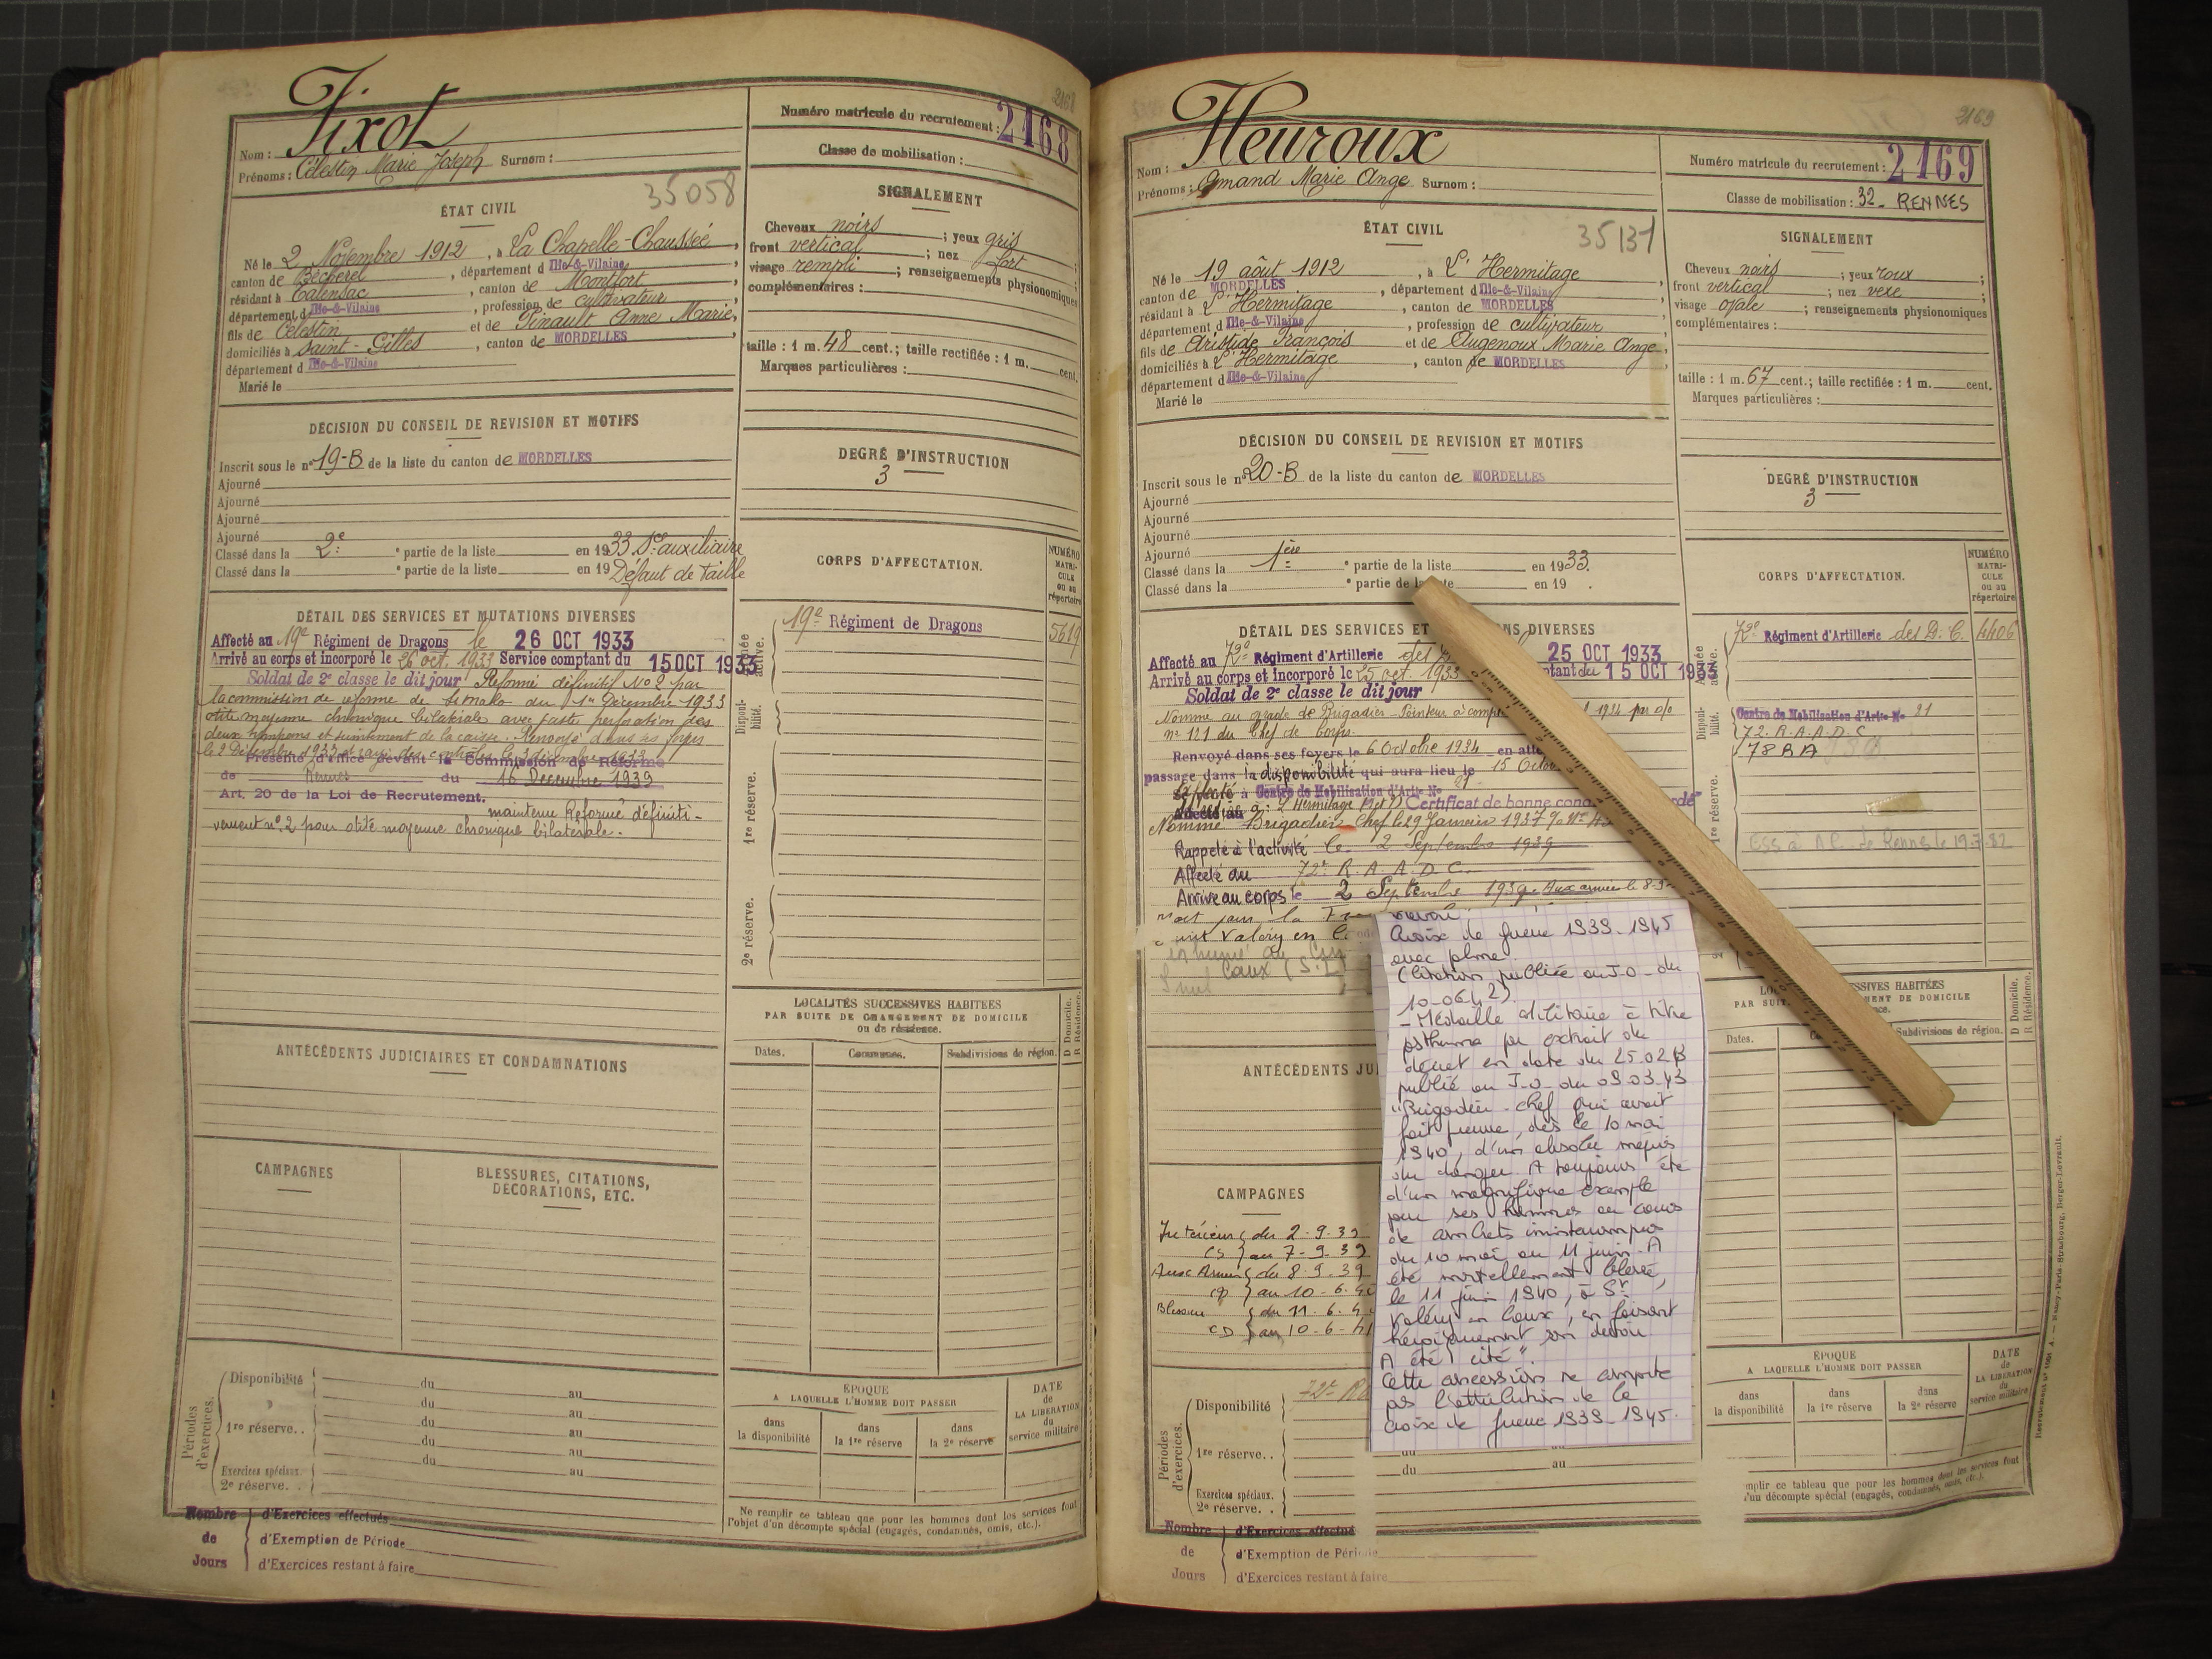 2168
Nom : Fixot
Prénoms : Célestin Marie Joseph Surnom :
35058
Numéro matricule du recrutement : 2168
Classe de mobilisation :
ÉTAT CIVIL
Né le 2 Novembre 1912, à La Chapelle-Chaussée,
canton de Bécherel, département d Ille-&-Vilaine,
résidant à Talensac, canton de Montfort
département d Ille-&-Vilaine, profession de cultivateur,
fils de Célestin et de Pinault Anne Marie,
domiciliés à Saint-Gilles, canton de MORDELLES,
département d Ille-&-Vilaine
Marié le
SIGNALEMENT
Cheveux noirs ; yeux gris
front vertical ; nez fort ;
visage rempli ; renseignements physionomiques
complémentaires :
taille : 1 m. 48 cent.; taille rectifiée : 1 m. cent.
Marques particulières :
DÉCISION DU CONSEIL DE REVISION ET MOTIFS
Inscrit sous le n° 19-B de la liste du canton de MORDELLES
Ajourné
Ajourné
Ajourné
Ajourné
Classé dans la 2e partie de la liste en 1933 Sce auxiliaire
Classé dans la partie de la liste en 19 Défaut de taille
DEGRÉ D'INSTRUCTION
3
CORPS D'AFFECTATION.
NUMÉRO MATRI- CULE ou au répertoire
Armée active.
19e Régiment de Dragons 5619
Disponi- bilité.
1re réserve.
2e réserve.
DÉTAIL DES SERVICES ET MUTATIONS DIVERSES
Affecté au 19e Régiment de Dragons le 26 OCT 1933
Arrivé au corps et incorporé le 26 oct. 1933 Service comptant du 15 OCT 1933
Soldat de 2e classe le dit jour Réformé définitif No 2 par
la commission de réforme de du 1er Décembre 1933
otite moyenne chronique bilatérale avec vaste perforation des
deux tympans et suintement de la caisse. Renvoyé dans ses foyers
le 2 Décembre 1933 et rayé des contrôles le 3 décembre 1933
Présenté d'office devant la Commission de Réforme
de Rennes du 16 Décembre 1939
Art. 20 de la Loi de Recrutement.
maintenu Réformé définiti-
vement n° 2 pour otite moyenne chronique bilatérale.
ANTÉCÉDENTS JUDICIAIRES ET CONDAMNATIONS
LOCALITÉS SUCCESSIVES HABITÉES
PAR SUITE DE CHANGEMENT DE DOMICILE
ou de résidence.
Dates. Communes. Subdivisions de région. D Domicile. R Résidence.
CAMPAGNES
BLESSURES, CITATIONS,
DÉCORATIONS, ETC.
Périodes d'exercices.
Disponibilité du au
du au
1re réserve. . du au
du au
Exercices spéciaux. du au
2e réserve. .
ÉPOQUE
A LAQUELLE L'HOMME DOIT PASSER
dans la disponibilité
dans la 1re réserve
dans la 2e réserve
DATE de LA LIBÉRATION du service militaire
Ne remplir ce tableau que pour les hommes dont les services font
l'objet d'un décompte spécial (engagés, condamnés, omis, etc.).
Nombre d'Exercices effectués
de d'Exemption de Période
Jours d'Exercices restant à faire
2169
Nom : Heuroux
Prénoms : Amand Marie Ange Surnom :
35131
Numéro matricule du recrutement : 2169
Classe de mobilisation : 32 - RENNES
ÉTAT CIVIL
Né le 19 août 1912, à L'Hermitage
canton de MORDELLES, département d Ille-&-Vilaine
résidant à L'Hermitage, canton de MORDELLES
département d Ille-&-Vilaine, profession de cultivateur
fils de Aristide François et de Augenoux Marie Ange,
domiciliés à L'Hermitage, canton de MORDELLES,
département d Ille-&-Vilaine
Marié le
SIGNALEMENT
Cheveux noirs ; yeux roux ;
front vertical ; nez vexe ;
visage ovale ; renseignements physionomiques
complémentaires :
taille : 1 m. 67 cent.; taille rectifiée : 1 m. cent.
Marques particulières :
DÉCISION DU CONSEIL DE REVISION ET MOTIFS
Inscrit sous le n° 20-B de la liste du canton de MORDELLES
Ajourné
Ajourné
Ajourné
Ajourné
Classé dans la 1ère partie de la liste en 1933.
Classé dans la partie de la liste en 19 .
DEGRÉ D'INSTRUCTION
3
CORPS D'AFFECTATION.
NUMÉRO MATRI- CULE ou au répertoire
72e Régiment d'Artillerie des D. C. 4406
Centre de Mobilisation d'Artie No 21
72 R.A.A.D.C
78 BA
1re réserve.
ESS à AC de Rennes le 19.7.82
DÉTAIL DES SERVICES ET NS DIVERSES
Affecté au 72e Régiment d'Artillerie des 25 OCT 1933
Arrivé au corps et incorporé le 25 oct. 1933 ptant du 15 OCT 1933
Soldat de 2e classe le dit jour
Nommé au grade de Brigadier-Pointeur à comp 1934 par o/o
n° 121 du Chef de Corps.
Renvoyé dans ses foyers le 6 Octobre 1934 en att
passage dans la disponibilité qui aura lieu le 15 Octo
Centre de Mobilisation d'Artie No 21
L'Hermitage Certificat de bonne con rdé
Nommé Brigadier Chef le 29 Janvier 1937
Rappelé à l'activité le 2 Septembre 1939
Affecté au 72e R.A.A.D.C.
Arrivé au corps le 2 Septembre 1939 Aux armées le 8-9-
Mort pour la Fra
Saint Valery en C
Caux (S.I.)
ANTÉCÉDENTS JU
devoir.
Croix de guerre 1939-1945
avec palme.
(Citation publiée au J-O- du
10-06-42).
- Médaille Militaire à titre
posthume par extrait du
décret en date du 25.02.43
publié au J-O- du 09.03.43
"Brigadier-chef qui avait
fait preuve, dès le 10 mai
1940, d'un absolu mépris
du danger. A toujours été
d'un magnifique exemple
pour ses hommes au cours
de combats ininterrompus
du 10 mai au 11 juin. A
été mortellement blessé,
le 11 juin 1940, à St
Valéry en Caux, en faisant
héroïquement son devoir.
A été cité".
Cette concession ne comporte
pas l'attribution de la
Croix de guerre 1939-1945.
CAMPAGNES
Intérieur du 2.9.39
CS au 7-9-39
Aux Armées du 8.9.39
CD au 10-6-40
Blessure du 11.6.4
CD au 10-6-41
SSIVES HABITÉES
PAR SUIT MENT DE DOMICILE
Dates. Subdivisions de région. D Domicile. R Résidence.
Périodes d'exercices.
Disponibilité 72e RA
1re réserve. .
du au
Exercices spéciaux.
2e réserve. .
ÉPOQUE
A LAQUELLE L'HOMME DOIT PASSER
dans la disponibilité
dans la 1re réserve
dans la 2e réserve
DATE de LA LIBÉRATION du service militaire
mplir ce tableau que pour les hommes dont les services font
d'un décompte spécial (engagés, condamnés, omis, etc.).
Nombre d'Exercices effectué
de d'Exemption de Période
Jours d'Exercices restant à faire